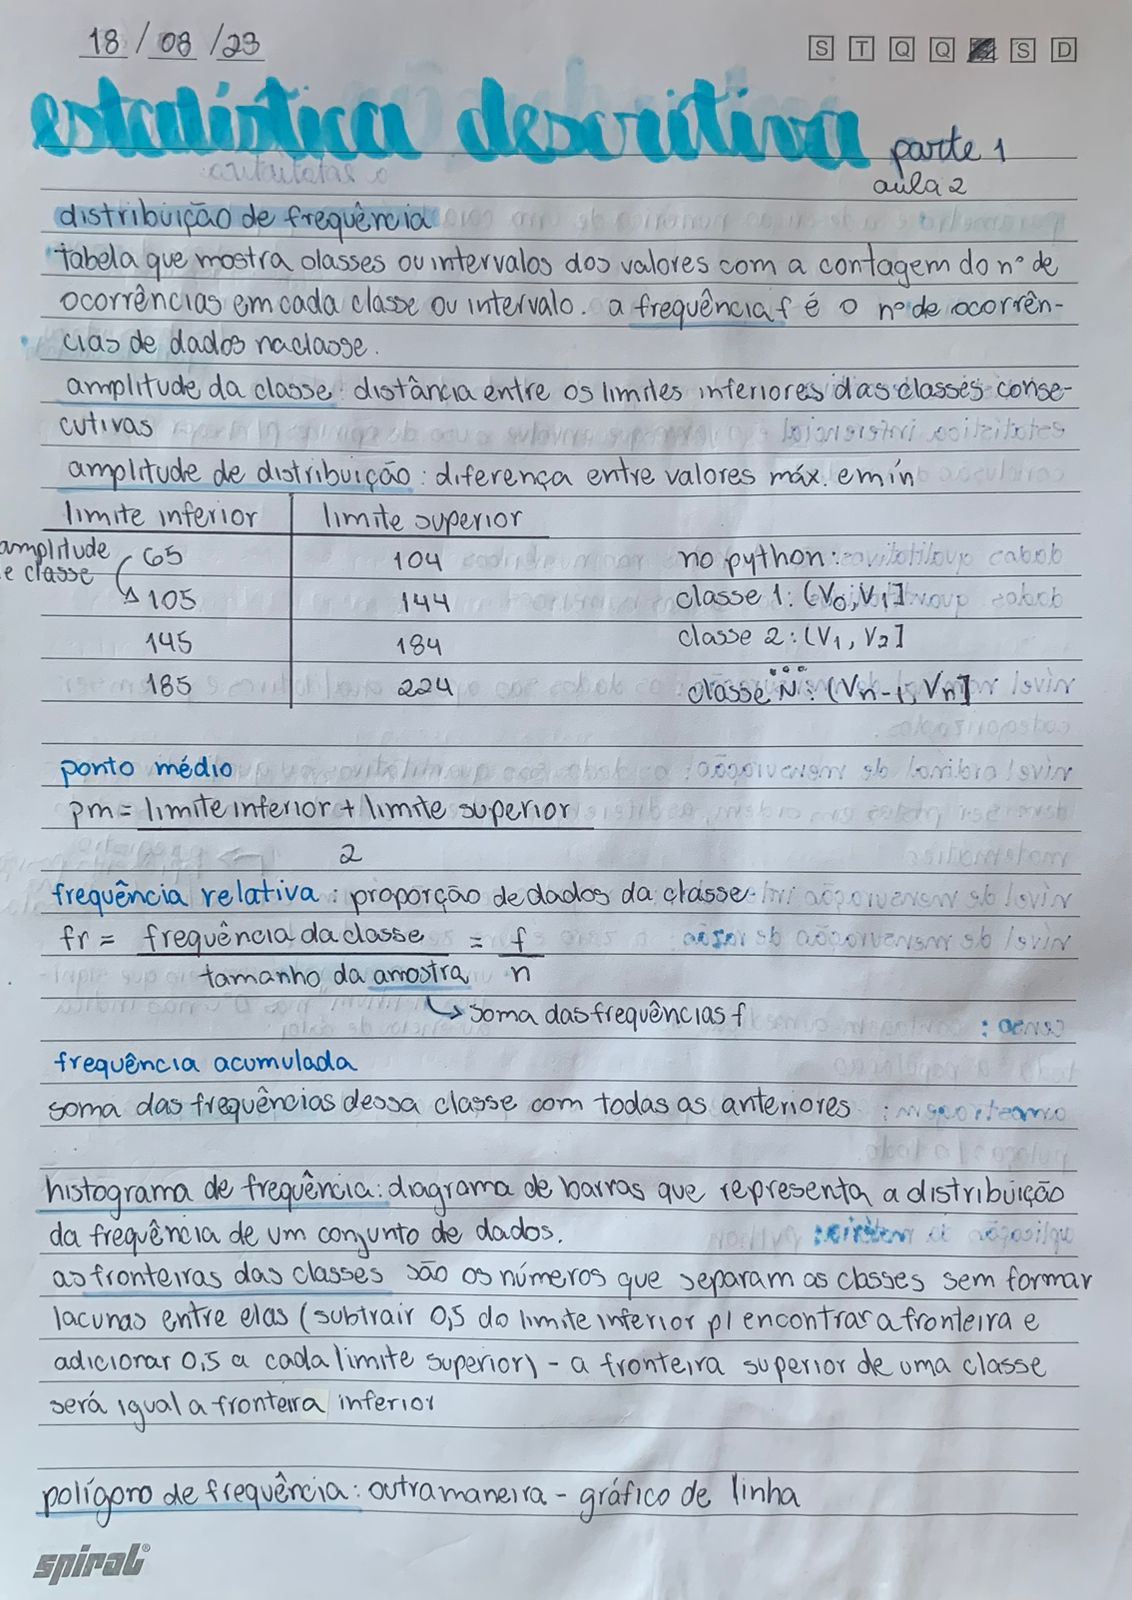 18/08/23
S T Q Q S D
estatística descritiva parte 1
aula 2
distribuição de frequência
tabela que mostra classes ou intervalos dos valores com a contagem do nº de
ocorrências em cada classe ou intervalo. a frequência f é o nº de ocorrên-
cias de dados na classe.
amplitude da classe: distância entre os limites inferiores das classes conse-
cutivas
amplitude de distribuição: diferença entre valores máx. e mín
limite inferior limite superior
amplitude 65 104 no python:
e classe 105 144 classe 1: (V0, V1]
145 184 classe 2: (V1, V2]
...
185 224 classe N: (Vn-1, Vn]
ponto médio
pm = limite inferior + limite superior
2
frequência relativa: proporção de dados da classe
fr = frequência da classe = f
tamanho da amostra n
↳ soma das frequências f
frequência acumulada
soma das frequências dessa classe com todas as anteriores
histograma de frequência: diagrama de barras que representa a distribuição
da frequência de um conjunto de dados.
as fronteiras das classes são os números que separam as classes sem formar
lacunas entre elas (subtrair 0,5 do limite inferior p/ encontrar a fronteira e
adicionar 0,5 a cada limite superior) - a fronteira superior de uma classe
será igual a fronteira inferior
polígono de frequência: outra maneira - gráfico de linha
spiral®